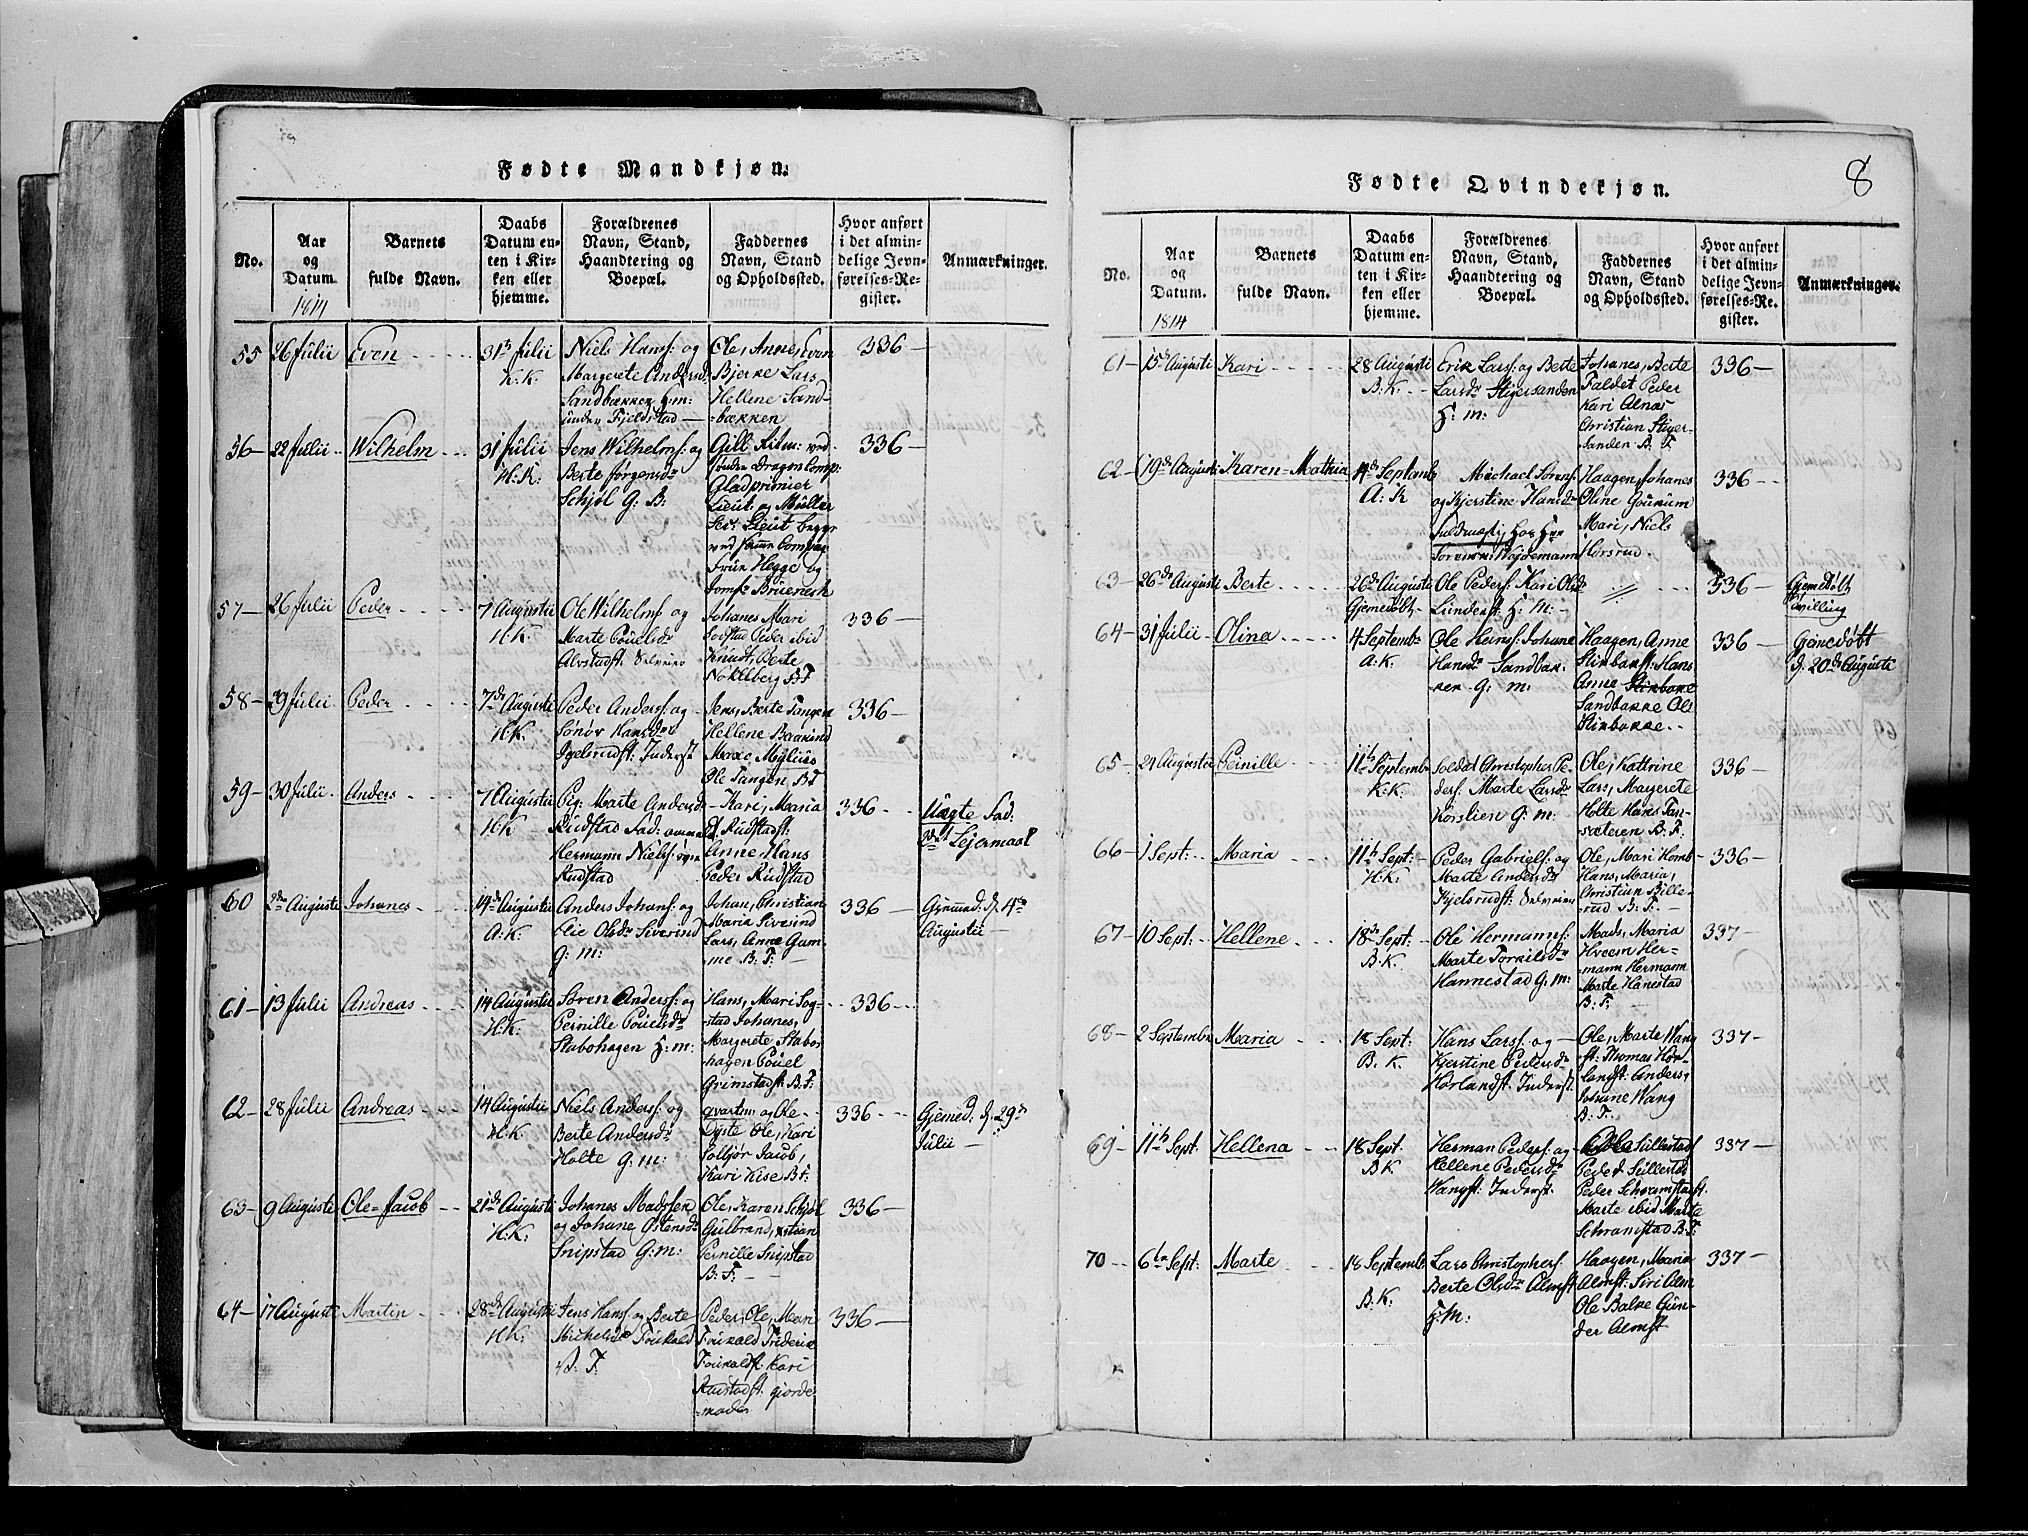 Fødte Mandkjøn.
No.
Aar
og
Datum.
1814
Barnets
fulde Navn.
Daabs
Datum en-
ten i Kir-
ken eller
hjemme.
Forældrenes
Navn, Stand,
Haandtering og
Boepæl.
Faddernes
Navn, Stand
og Opholdssted.
Hvor anført
i det almin-
delige Jevn-
førelses-Re-
gister.
Anmærkninger.
55 26 Julii Even
31te Julii
H: K.
Niels Hansf: og
Margrete Andersd.
Sandbækken H: m:
under Fjeldstad
Ole, Anne, Even
Bjerke Lars
Hellene Sand-
bækken
336
56 22 Julii Wilhelm
31 Julii
H: K:
Jens Wilhelmf: og
Berte Jørgensdr
Schjøl G: B:
336
57 26 Julii Peder
7 Augustii
H: K.
Ole Wilhelmf: og
Marte Pouelsdr
Alvstadst:
Johanes Mari
Peder ibid
Knudt, Berte
Nøkleberg B: F
336
58 29 Julii Peder
7de Augustii
H: K.
Peder Andersf: og
Sønøv Hansdr
Igelsrudst: Inderst
Jens, Berte Tangen
Hellene
Ole Tangen B: F
336
59 30 Julii Anders
7 Augustii
H: K
Pig: Marte Andersd
Rudstad
Hermann Nielsf:
Rudstad
Kari, Maria
Rudstadst:
Anne, Hans
Peder Rudstad
336
Uægte
Lejermaal
60 2de Augustii Johanes
14de Augustii
A: K.
Anders Johansf: og
Olsdr Siverind
G: m:
Johan, Christian
Maria Siverind
Lars, Anne Gum-
me B: F:
336
Gjemmed: d. 4de
Augustii
61 13 Julii Andreas
14 Augustii
H: K:
Søren Andersf: og
Pernille Pouelsdr
Stabohagen H: m:
Hans, Mari Sog-
stad Johanes,
Margrete Stabo-
hagen Pouel
Grimstadst: B: F:
336
62 28 Julii Andreas
14 Augustii
H: K.
Niels Andersf: og
Berte Andersdr
Holte G: m:
qvartm: og Ole
Dyste Ole, Kari
Solbjør Jacob,
Kari Kise B: F:
336
Gjemed: d: 29de
Julii
63 9 Augustii Ole-Jacob
21de Augusti
H: K:
Johanes Madssen
og Johane Ostensdr
Snipstad G: m:
Ole, Karen Schjøl
Gulbrand,
Pernille Snipstad
B: F:
336
64 17 Augusti Martin
28de Augusti
H: K.
Jens Hansf: og Berte
Michelsdr
B: F.
Peder, Ole, Mari
336

Fødte Qvindekjøn.
8
No.
Aar
og
Datum.
1814
Barnets
fulde Navn.
Daabs
Datum en-
ten i Kir-
ken eller
hjemme.
Forældrenes
Navn, Stand,
Haandtering og
Boepæl.
Faddernes
Navn, Stand
og Opholdssted.
Hvor anført
i det almin-
delige Jevn-
førelses-Re-
gister.
Anmærkninger.
61 15de Augusti Kari
28 Augusti
B: K.
Erik Larsf: og Berte
Larsdr Stigersanden
H: m:
Johanes, Berte
Faldet Peder
Kari Alnæs
Christian Stiger-
sanden B: F
336
62 19de Augusti Karen-Mathia
4de Septemb
A: K
Michael Sørensf:
og Kjerstine Hansdr
Haagen, Johanes
Oline
Mari, Niels
336
63 26de Augusti Berte
26de Augusti
Gjemedøbt
Ole Pedersf: Kari Olsdr
Lunderst: H: M:
336
Gjemedøbt
Tvilling
64 31 Julii Olina
4 Septembr
A: K.
Ole Hansf: Johane
Hansdr Sandbæk-
ken G: m:
Haagen, Anne
Hans
Anne
Sandbækken Ole
336
Gjemedøbt
d: 20de Augusti
65 21 Augusti Pernille
11te Septemb
K: K.
Soldat Christopher Pe-
dersf. Marte Larsdr
Korslien G: m:
Ole, Kattrine
Lars, Margrete
Holte Hans
B: F:
336
66 1 Sept: Maria
11te Sept:
H: K.
Peder Gabrielsf: og
Marte Andersdr
Kjelsrudst:
Ole, Mari
Hans, Maria,
Christian Bille-
rud B: F:
336
67 10 Sept: Hellene
18de Sept:
B: K.
Ole Hermannf:
Marte Torkilsdr
Hannestad G: m:
Mads, Maria
Hveem Her-
mann Hermann
Marte Hanestad
B: F:
337
68 2 Septembr Maria
18 Sept:
B: K.
Hans Larsf: og
Kjerstine Pedersdr
Hørlandst: Inderst
Ole, Marte Wang
st: Thomas Hør-
landst: Anders,
Johane Wang
B: F:
337
69 11te Sept Hellena
18 Sept.
B: K
Herman Pedersf: og
Hellene Pedersdr
Wangst: Inderst.
Sillestad
Peder Sillestad
Peder Schramstadst.
Marte ibid Marte
Schramstad B: F:
337
70 6te Sept: Marte
18 Septemb
B: K.
Lars Christophersf:
Berte Olsdr Almst
H: M:
Haagen, Maria
Almst: Siri Alm
Ole Balke Gun-
der Almst
337